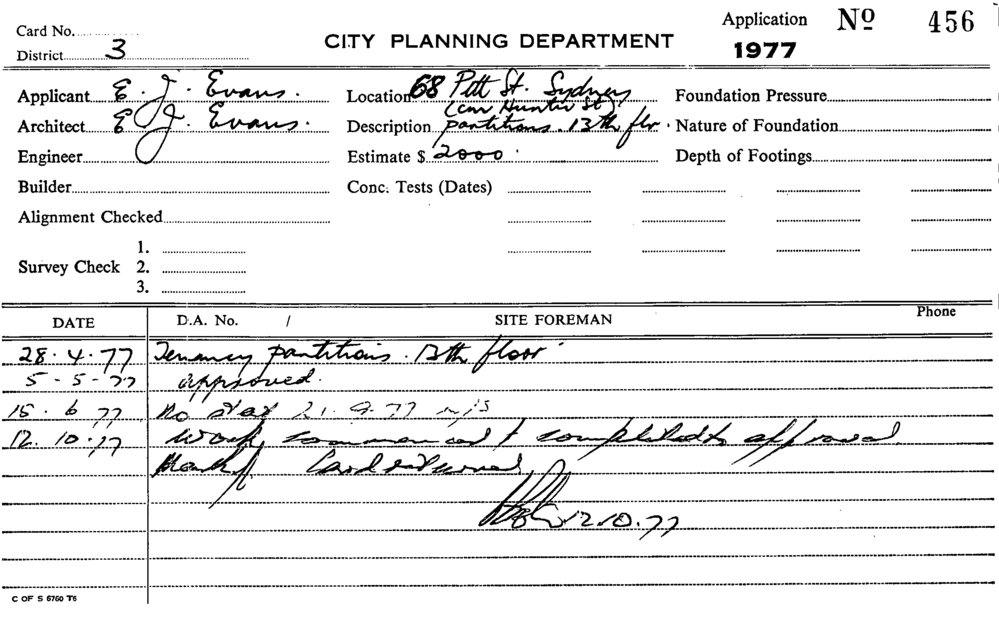 Card No.
District 3
CITY PLANNING DEPARTMENT
Application Nº 456
1977
Applicant E. J. Evans.
Architect E J. Evans.
Engineer
Builder
Alignment Checked
Survey Check
1.
2.
3.
Location 68 Pitt St. Sydney
(cnr Hunter St)
Description partitions. 13th flr.
Estimate $ 2000.
Conc. Tests (Dates)
Foundation Pressure
Nature of Foundation
Depth of Footings
DATE D.A. No. / SITE FOREMAN Phone
28.4.77 Tenancy partitions. 13th floor
5-5-77 approved.
15.6.77 No start 21.9.77 n/s
12.10.77 Work commenced & completed to approval.
Card returned
12.10.77
C OF S 6760 T6